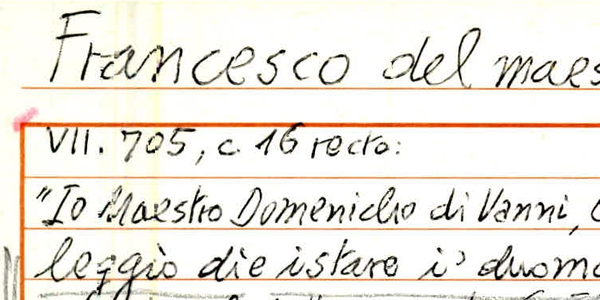 Francesco del maes
VII. 705, c. 16 recto:
"Io Maestro Domenicho di Vanni,
leggio die istare i' duomo